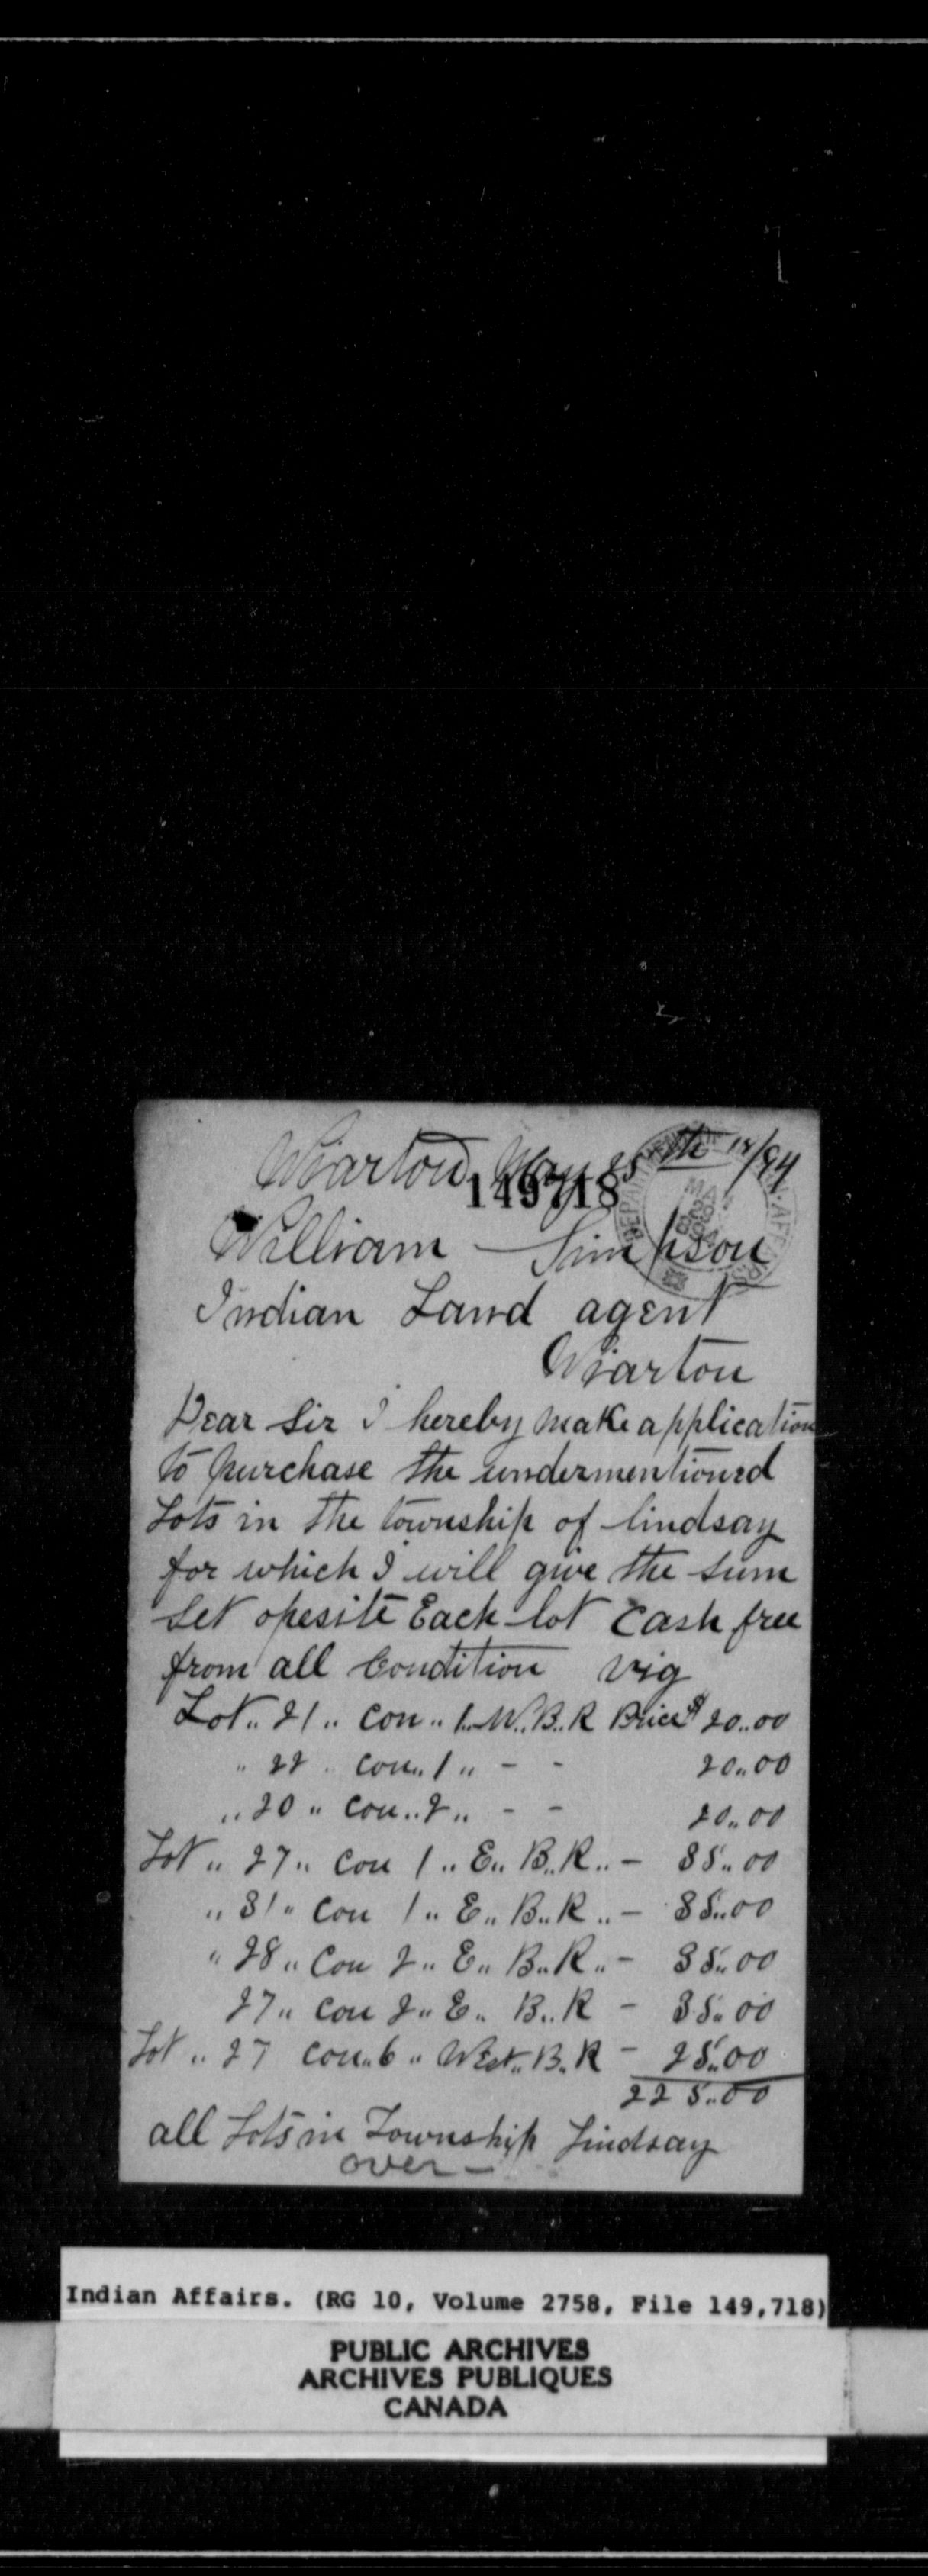 Wiarton May 25th 18/94
149718
William Simpson
Indian Land agent
Wiarton
Dear Sir I hereby make application
to purchase the undermentioned
Lots in the township of lindsay
for which I will give the sum
Set opesite Each lot Cash free
from all Condition viz
Lot " 21 " Con " 1 " W. B. R Price $ 20.00
" 22 " Con " 1 " - - 20.00
" 20 " Con " 2 " - - 20.00
Lot " 27 " Con 1 " E. B. R. - 35.00
" 31 " Con 1 " E. B. R. - 35.00
" 28 " Con 2 " E. B. R. - 35.00
27 " Con 2 " E. B. R - 35.00
Lot " 27 Con 6 " West. B. R - 25.00
225.00
all Lots in Township Lindsay
over -
Indian Affairs. (RG 10, Volume 2758, File 149,718)
PUBLIC ARCHIVES
ARCHIVES PUBLIQUES
CANADA